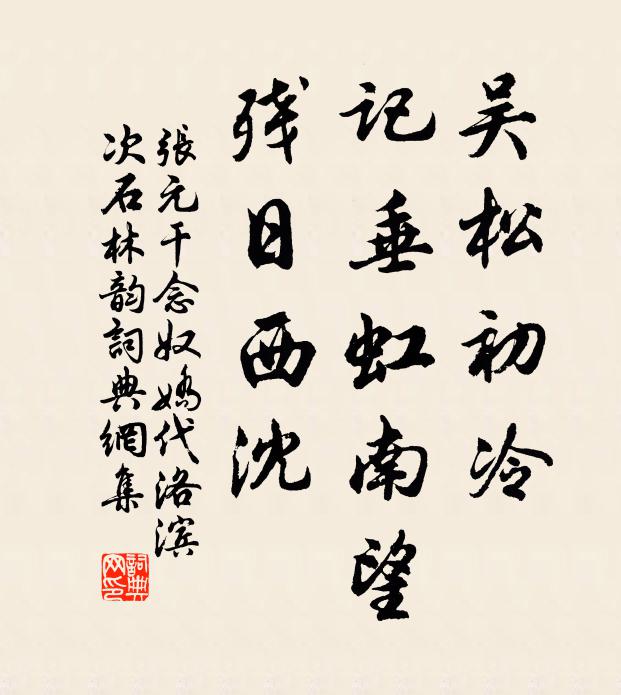 吴松初冷
记垂虹南望
残日西沈
張元干念奴嬌代洛滨
次石林韵詞典網集
詞典网印